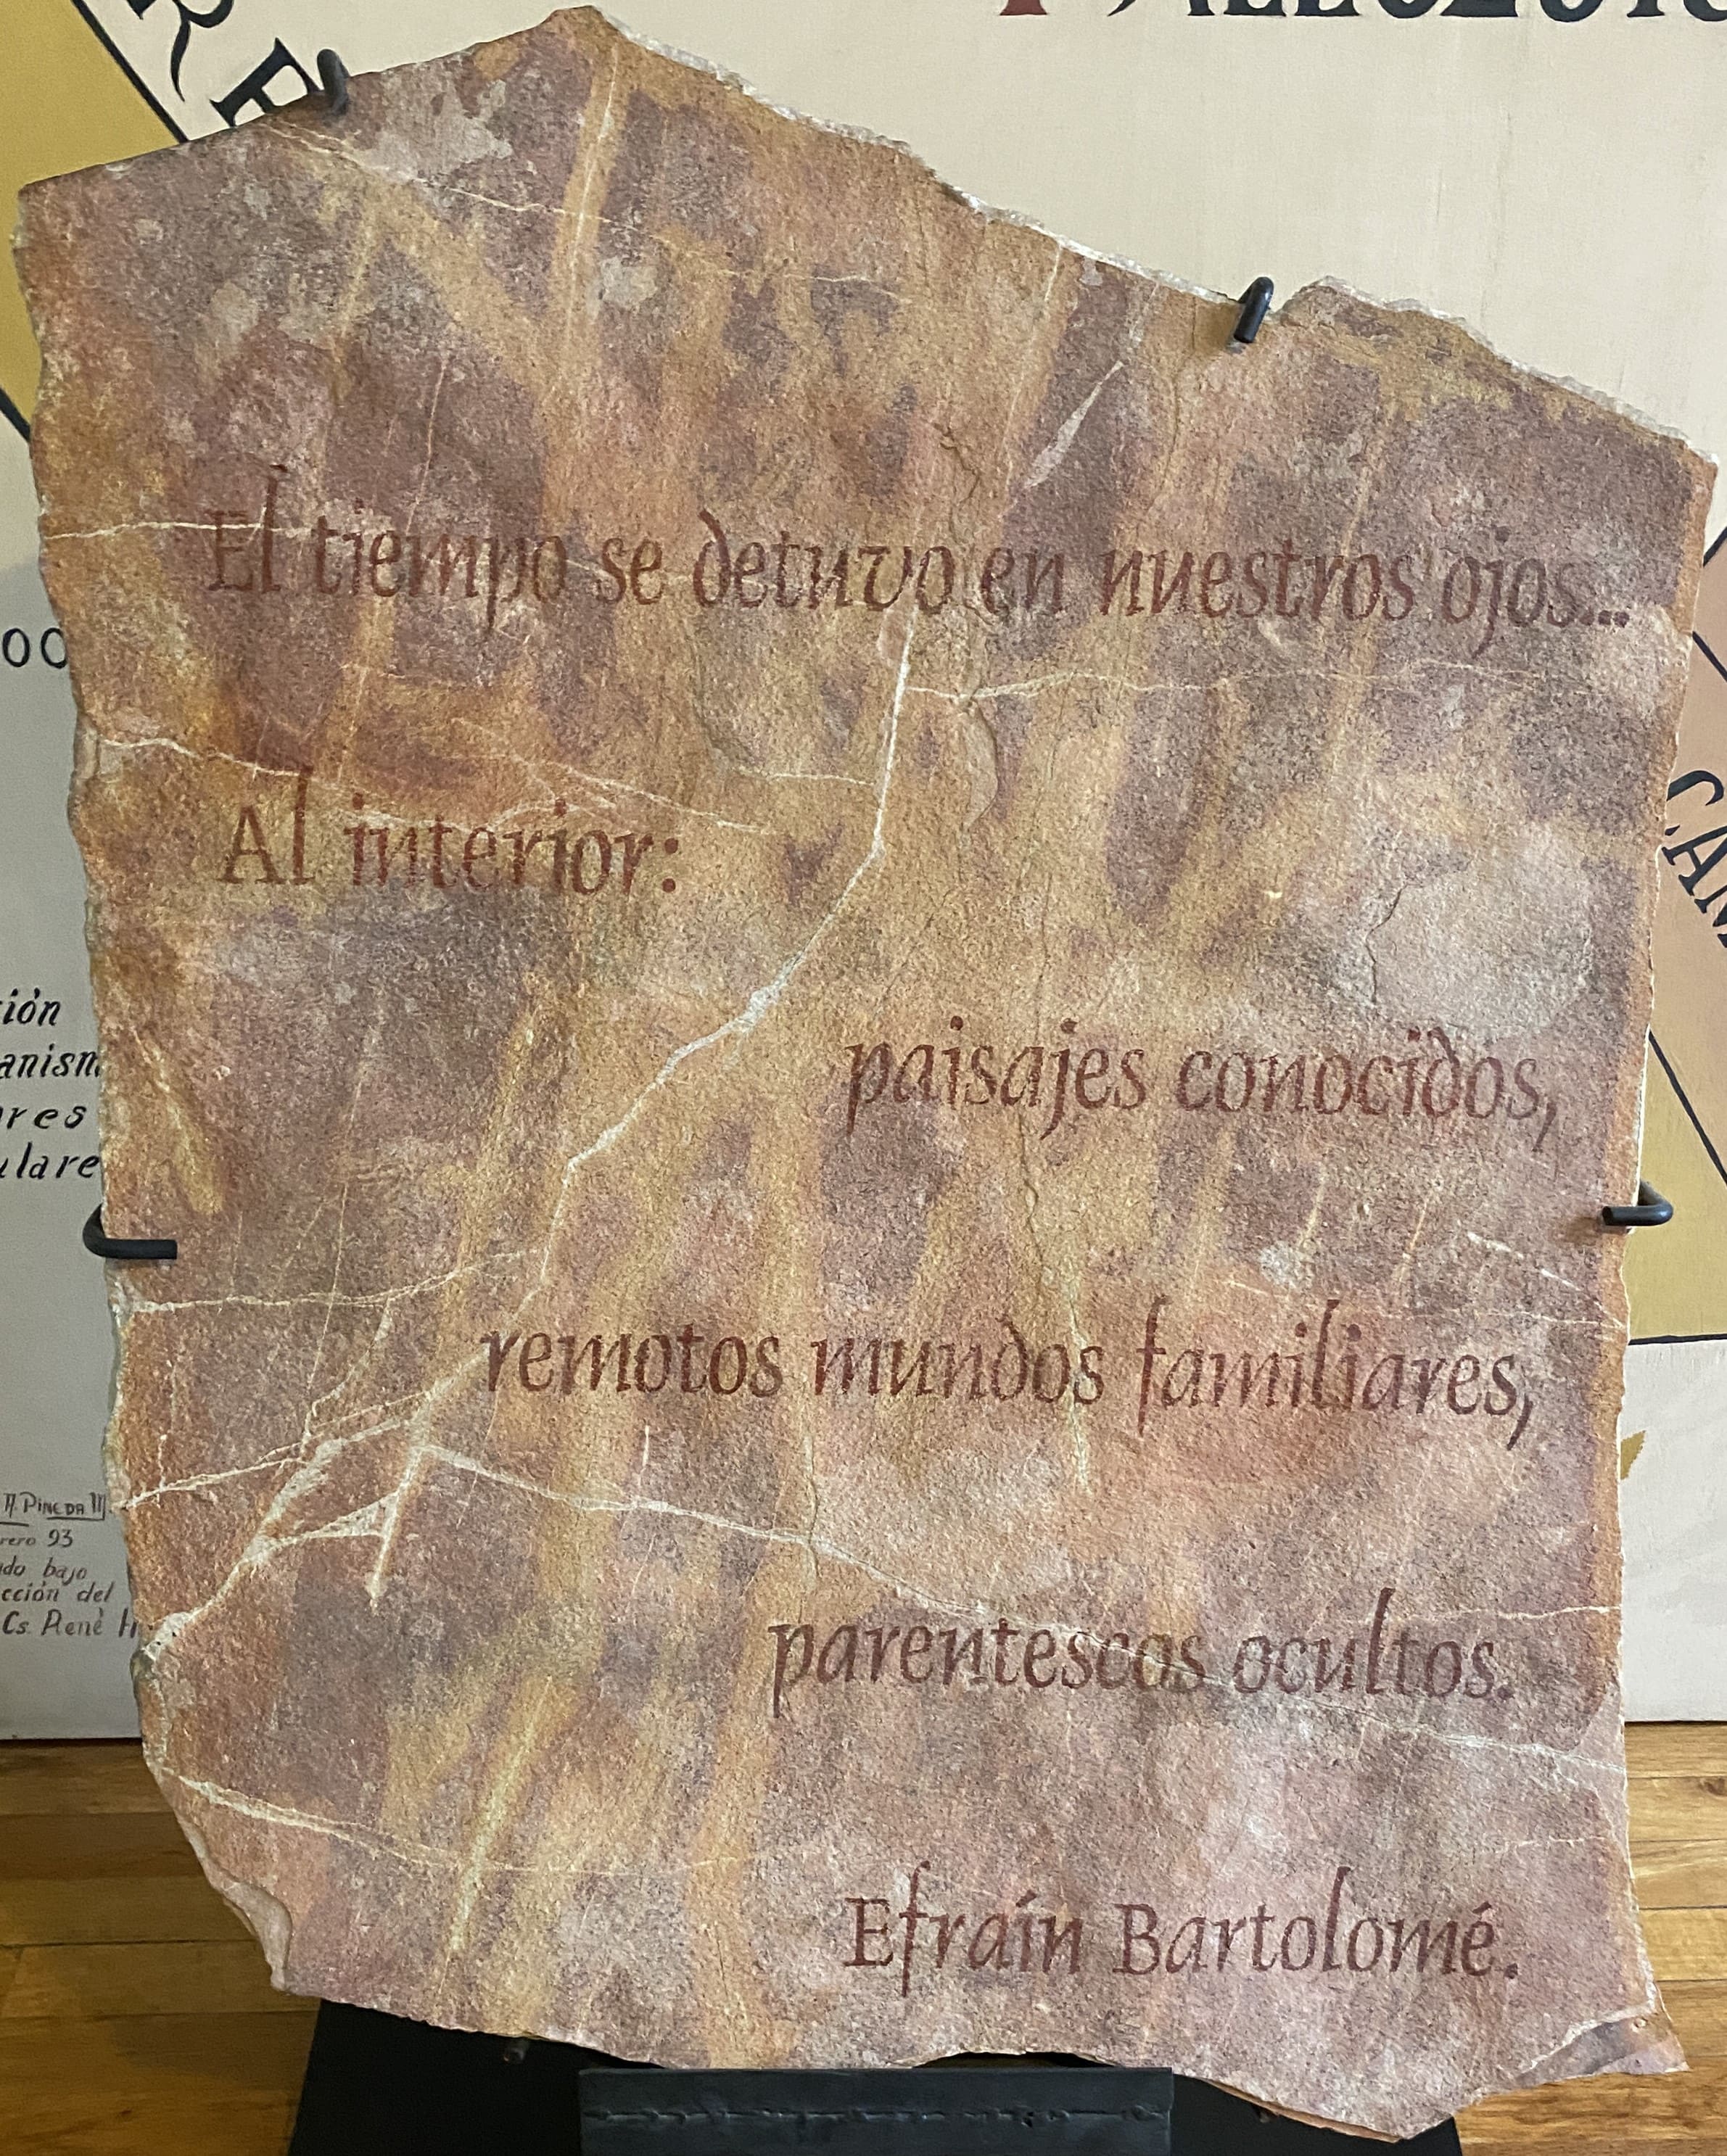 El tiempo se detuvo en nuestros ojos...
Al interior:
paisajes conocidos,
remotos mundos familiares,
parentescos ocultos.
Efraín Bartolomé.
A. Pineda M.
93
bajo
del
Cs. René